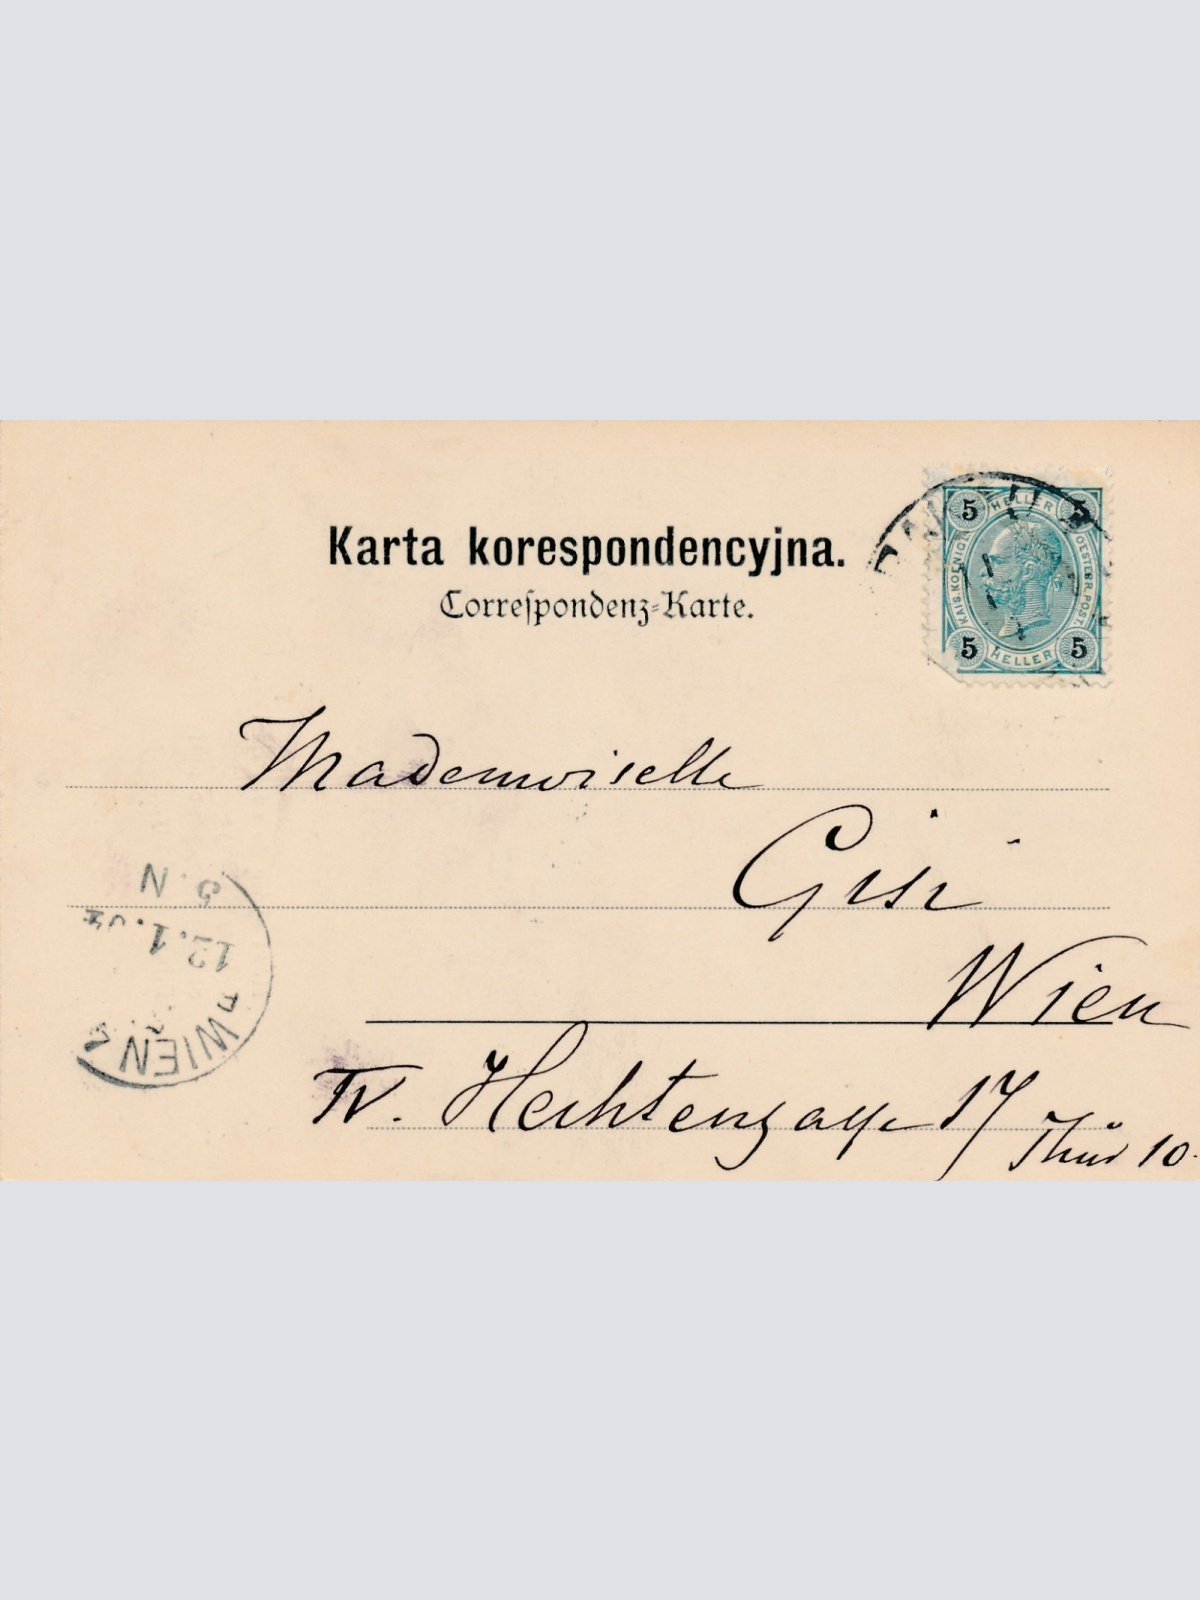 Karta korespondencyjna.
Correſpondenz-Karte.
5 HELLER 5
KAIS. KOENIGL. OESTERR. POST.
5 HELLER 5
Mademoiselle
Gisi
Wien
IV. Hechtengasse 17 Thür 10.
5. N
12.1.
WIEN